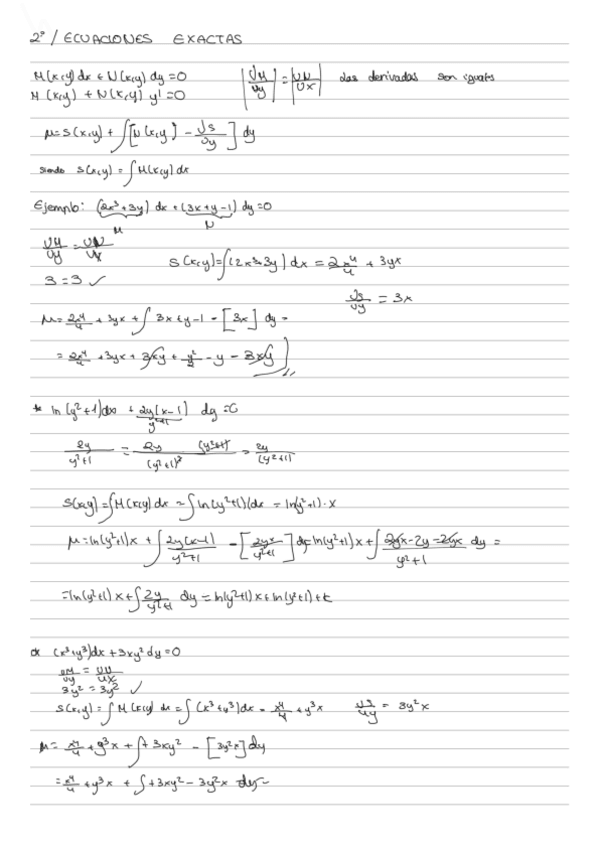 2º/ ECUACIONES EXACTAS
M(x,y)dx + N(x,y)dy=0 |∂M/∂y|=|∂N/∂x| las derivadas son iguales
M(x,y) + N(x,y) y'=0
μ=S(x,y) + ∫[N(x,y) - ∂s/∂y] dy
siendo S(x,y) = ∫M(x,y)dx
Ejemplo: (2x³+3y)dx + (3x+y-1)dy=0
M N
∂M/∂y = ∂N/∂x
S(x,y)=∫(2x³+3y)dx = 2x⁴/4 + 3yx
3=3 ✓
∂s/∂y = 3x
μ= 2x⁴/4 + 3yx + ∫ 3x+y-1 - [3x] dy =
= 2x⁴/4 + 3yx + 3xy + y²/2 - y - 3xy
* ln(y²+1)dx + 2y(x-1)/y²+1 dy =0
2y/y²+1 = 2y (y²+1)/(y²+1)² = 2y/(y²+1)
S(x,y)=∫M(x,y)dx = ∫ln(y²+1)dx = ln(y²+1)·x
μ=ln(y²+1)x + ∫2y(x-1)/y²+1 - [2yx/y²+1]dy=ln(y²+1)x+∫2yx-2y-2yx/y²+1 dy =
=ln(y²+1)x+∫2y/y²+1 dy = ln(y²+1)x+ln(y²+1)+k
(x³+y³)dx + 3xy²dy=0
∂M/∂y = ∂N/∂x
3y² = 3y² ✓
S(x,y)=∫M(x,y)dx = ∫(x³+y³)dx = x⁴/4 + y³x ∂s/∂y = 3y²x
μ= x⁴/4 + y³x + ∫+3xy² - [3y²x]dy
= x⁴/4 + y³x + ∫+3xy² - 3y²x dy